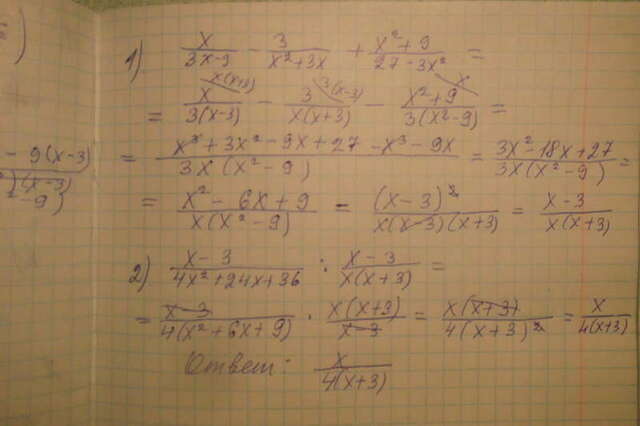 - 9(x-3)
(x-3)
-9)
1) x/(3x-9) - 3/(x²+3x) + (x²+9)/(27-3x²) =
= x/(3(x-3)) x(x+3) - 3/(x(x+3)) 3(x-3) - (x²+9)/(3(x²-9)) x =
= (x³+3x²-9x+27-x³-9x)/(3x(x²-9)) = (3x²-18x+27)/(3x(x²-9)) =
= (x²-6x+9)/(x(x²-9)) = (x-3)²/(x(x-3)(x+3)) = (x-3)/(x(x+3))
2) (x-3)/(4x²+24x+36) : (x-3)/(x(x+3)) =
= (x-3)/(4(x²+6x+9)) · (x(x+3))/(x-3) = (x(x+3))/(4(x+3)²) = x/(4(x+3))
Ответ: x/(4(x+3))